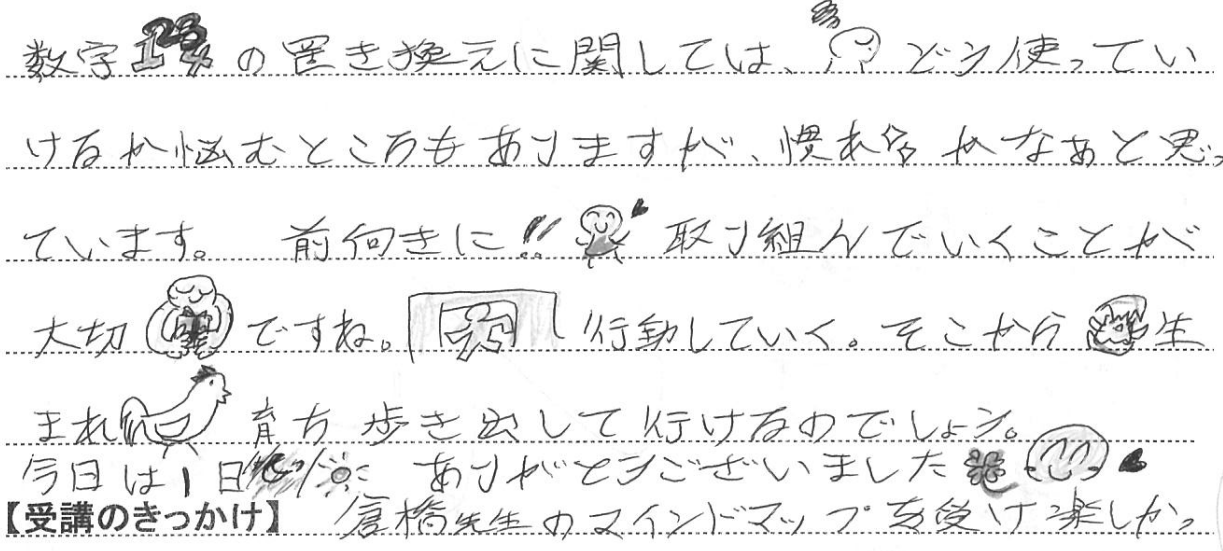 数字1234の置き換えに関しては、どう使ってい
けるか悩むところもありますが、慣れるかなぁと思っ
ています。 前向きに!! 取り組んでいくことが
大切ですね。 行動していく。そこから生
まれ 育ち 歩き出して行けるのでしょう。
今日は1日 ありがとうございました
【受講のきっかけ】 倉橋先生のマインドマップを受け楽しかっ